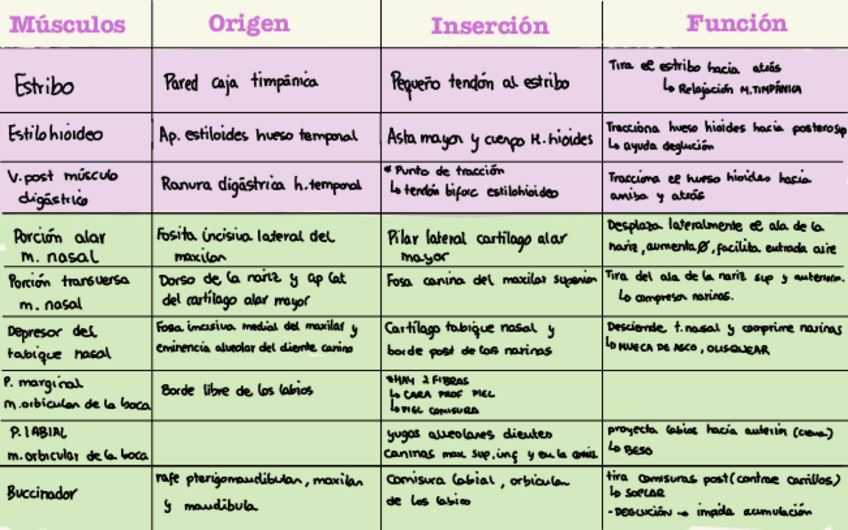 Músculos Origen Inserción Función
Estribo
Pared caja timpánica
Pequeño tendón al estribo
Tira el estribo hacia atrás
↳ Relajación M.TIMPÁNICA
Estilohioideo
Ap. estiloides hueso temporal
Asta mayor y cuerpo H. hioides
Tracciona hueso hioides hacia posterosup
↳ ayuda deglución
V. post músculo
digástrico
Ranura digástrica h. temporal
* Punto de tracción
↳ tendón bifurc estilohioideo
Tracciona el hueso hioides hacia
arriba y atrás
Porción alar
m. nasal
Fosita incisiva lateral del
maxilar
Pilar lateral cartílago alar
mayor
Desplaza lateralmente el ala de la
nariz, aumenta Ø, facilita entrada aire
Porción transversa
m. nasal
Dorso de la nariz y ap lat
del cartílago alar mayor
Fosa canina del maxilar superior
Tira del ala de la nariz sup y anterior.
↳ compresor narinas.
Depresor del
tabique nasal
Fosa incisiva medial del maxilar y
eminencia alveolar del diente canino
Cartílago tabique nasal y
borde post de las narinas
Desciende t. nasal y comprime narinas
↳ MUECA DE ASCO, OLISQUEAR
P. marginal
m. orbicular de la boca
Borde libre de los labios
*HAY 2 FIBRAS
↳ CARA PROF PIEL
↳ PIEL COMISURA
P. LABIAL
m. orbicular de la boca
yugas alveolares dientes
caninos max sup, inf y en la comis.
proyecta labios hacia anterior (cierra)
↳ BESO
Buccinador
rafe pterigomandibular, maxilar
y mandíbula
Comisura labial, orbicular
de los labios
tira comisuras post (contrae carrillos)
↳ SOPLAR
- DEGLUCIÓN → impida acumulación